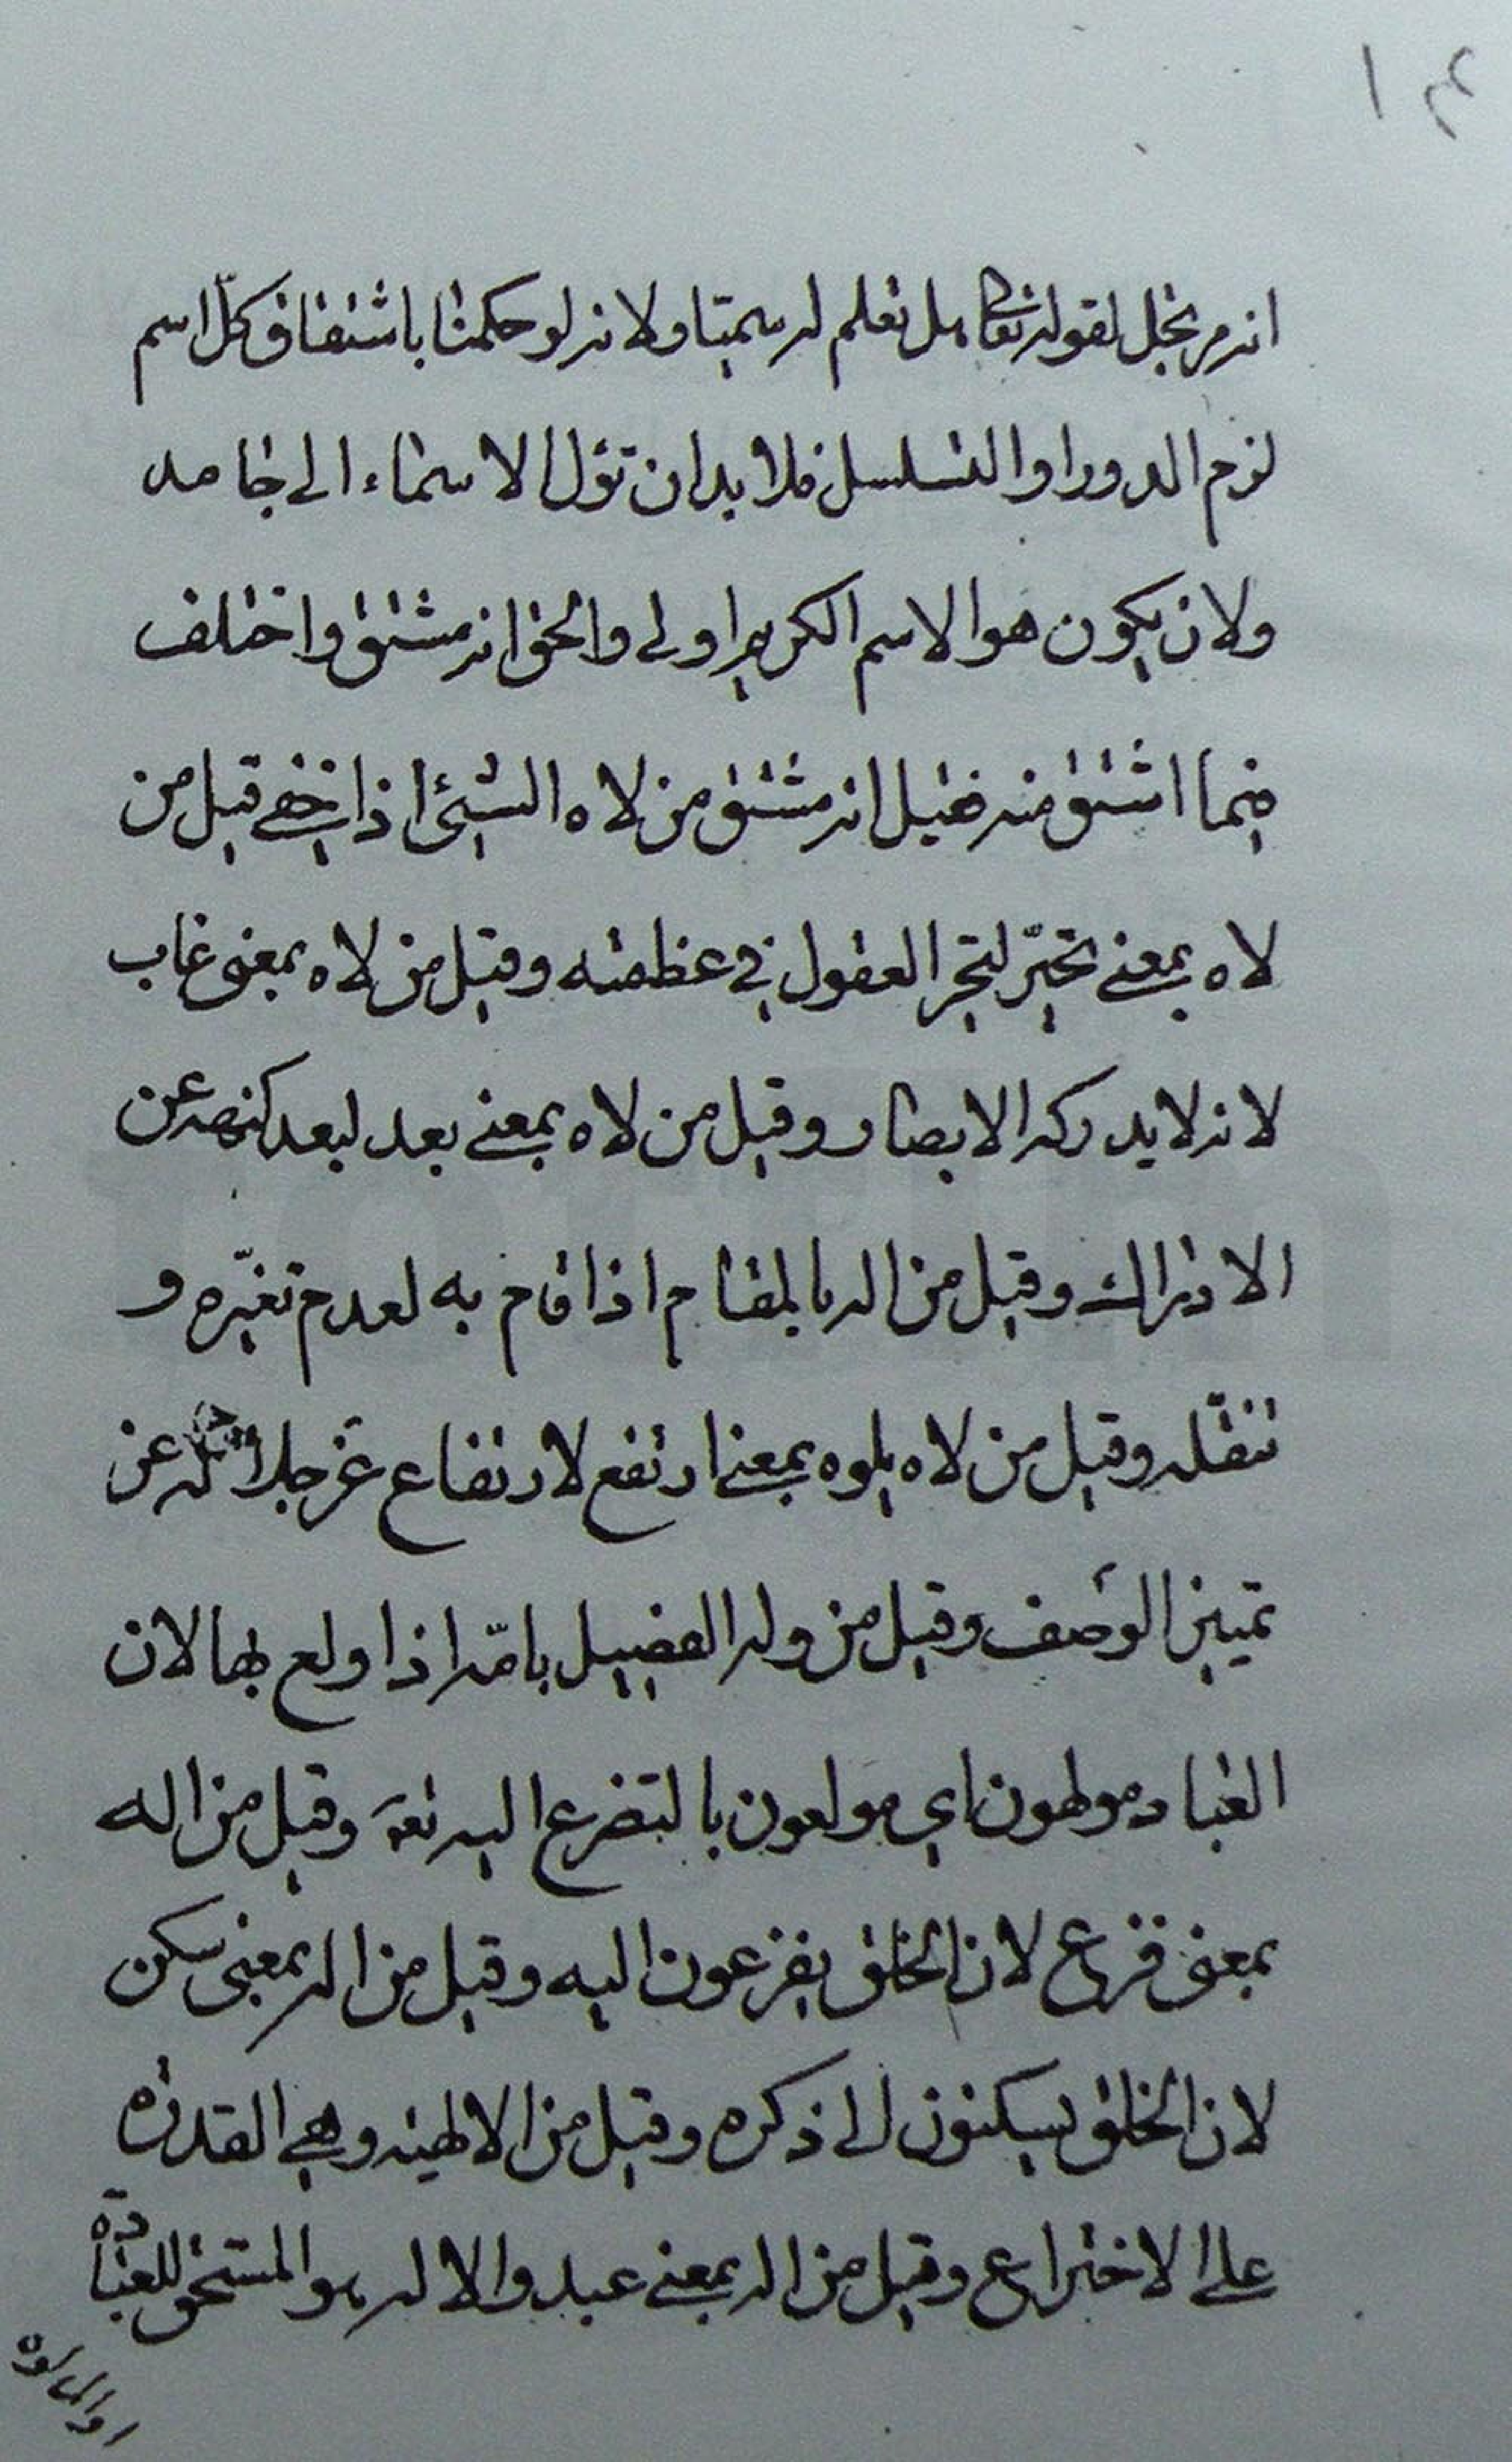 ١٤
انه مرتجل لقوله تعالى هل تعلم له سميّا ولانه لو حكمنا باشتقاق كلّ اسم
لزم الدور او التسلسل فلا بد ان تؤل الاسماء الى جامد
ولان يكون هو الاسم الكريم اولى والحق انه مشتق واختلف
فيما اشتق منه فقيل انه مشتق من لاه الشئ اذا خفي قيل من
لاه بمعنى تحيّر لتحير العقول في عظمته وقيل من لاه بمعنى غاب
لانه لا يدركه الابصار وقيل من لاه بمعنى بعد لبعد كنهه عن
الادراك وقيل من اله بالمقام اذا قام به لعدم تغيّره و
تنقّله وقيل من لاه يلوه بمعنى ارتفع لارتفاع عز جلاله عن
تمييز الوصف وقيل من وله الفصيل بامّه اذا ولع بها لان
العباد مولهون اي مولعون بالتضرع اليه تع وقيل من اله
بمعنى فزع لان الخلق يفزعون اليه وقيل من اله بمعنى سكن
لان الخلق يسكنون الى ذكره وقيل من الالهية وهي القدرة
على الاختراع وقيل من اله بمعنى عبد والاله هو المستحق للعبادة